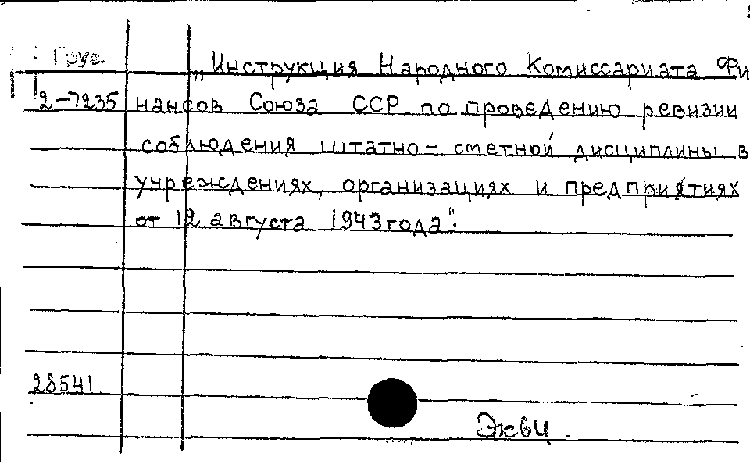 Груз.
„Инструкция Народного Комиссариата Фи
2-7235 нансов Союза ССР по проведению ревизии
соблюдения штатно-сметной дисциплины в
учреждениях, организациях и предприятиях
от 12 августа 1943 года".
28541